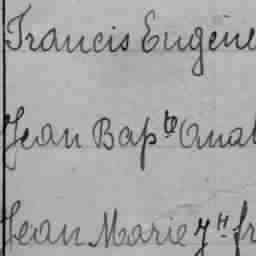 Francis Eugène
Jean Bapte Anat
Jean Marie Jh fr